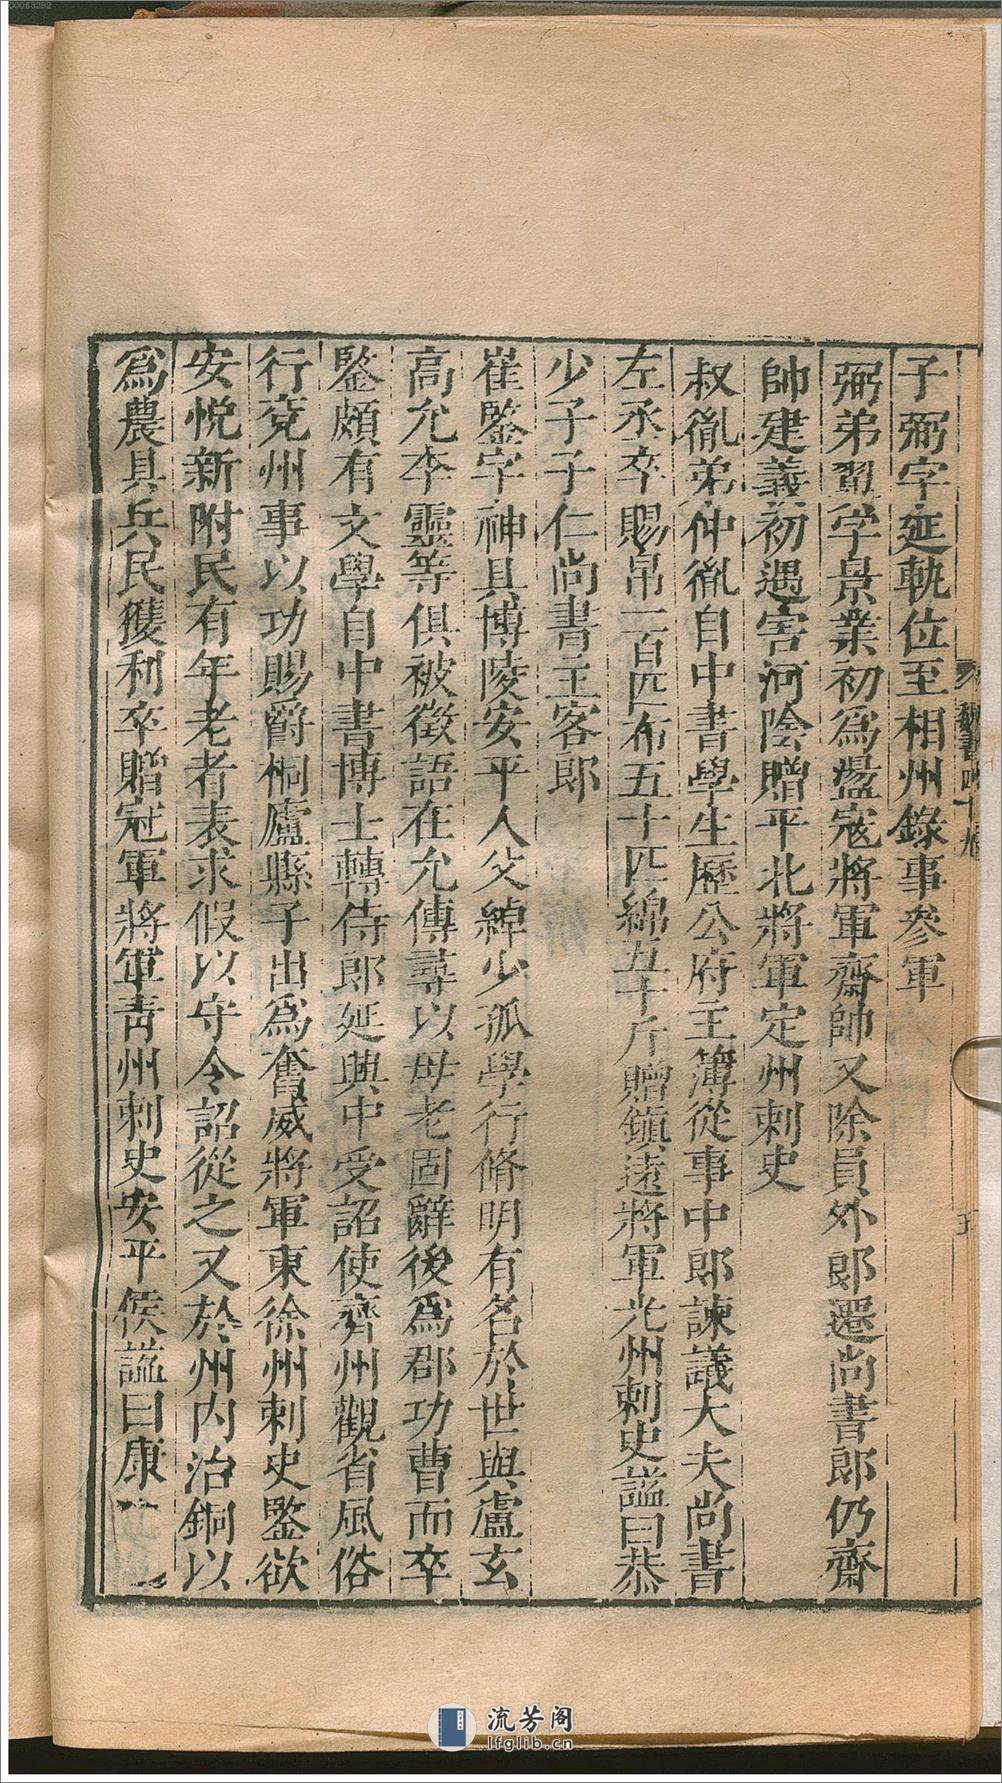 00063282
魏書四十九
五
子弼字延軌位至相州錄事參軍
弼弟翼字景業初爲盪寇將軍齋帥又除員外郎遷尚書郎仍齋
帥建義初遇害河陰贈平北將軍定州刺史
叔胤弟仲胤自中書學生歷公府主簿從事中郎諫議大夫尚書
左丞卒賜帛一百匹布五十匹綿五十斤贈鎮遠將軍光州刺史謚曰恭
少子子仁尚書主客郎
崔鑒字神具博陵安平人父綽少孤學行脩明有名於世與盧玄
高允李靈等俱被徵語在允傳尋以母老固辭後爲郡功曹而卒
鑒頗有文學自中書博士轉侍郎延興中受詔使齊州觀省風俗
行兗州事以功賜爵桐廬縣子出爲奮威將軍東徐州刺史鑒欲
安悅新附民有年老者表求假以守令詔從之又於州內冶銅以
爲農具兵民獲利卒贈冠軍將軍青州刺史安平侯謚曰康
流芳阁
lfglib.cn